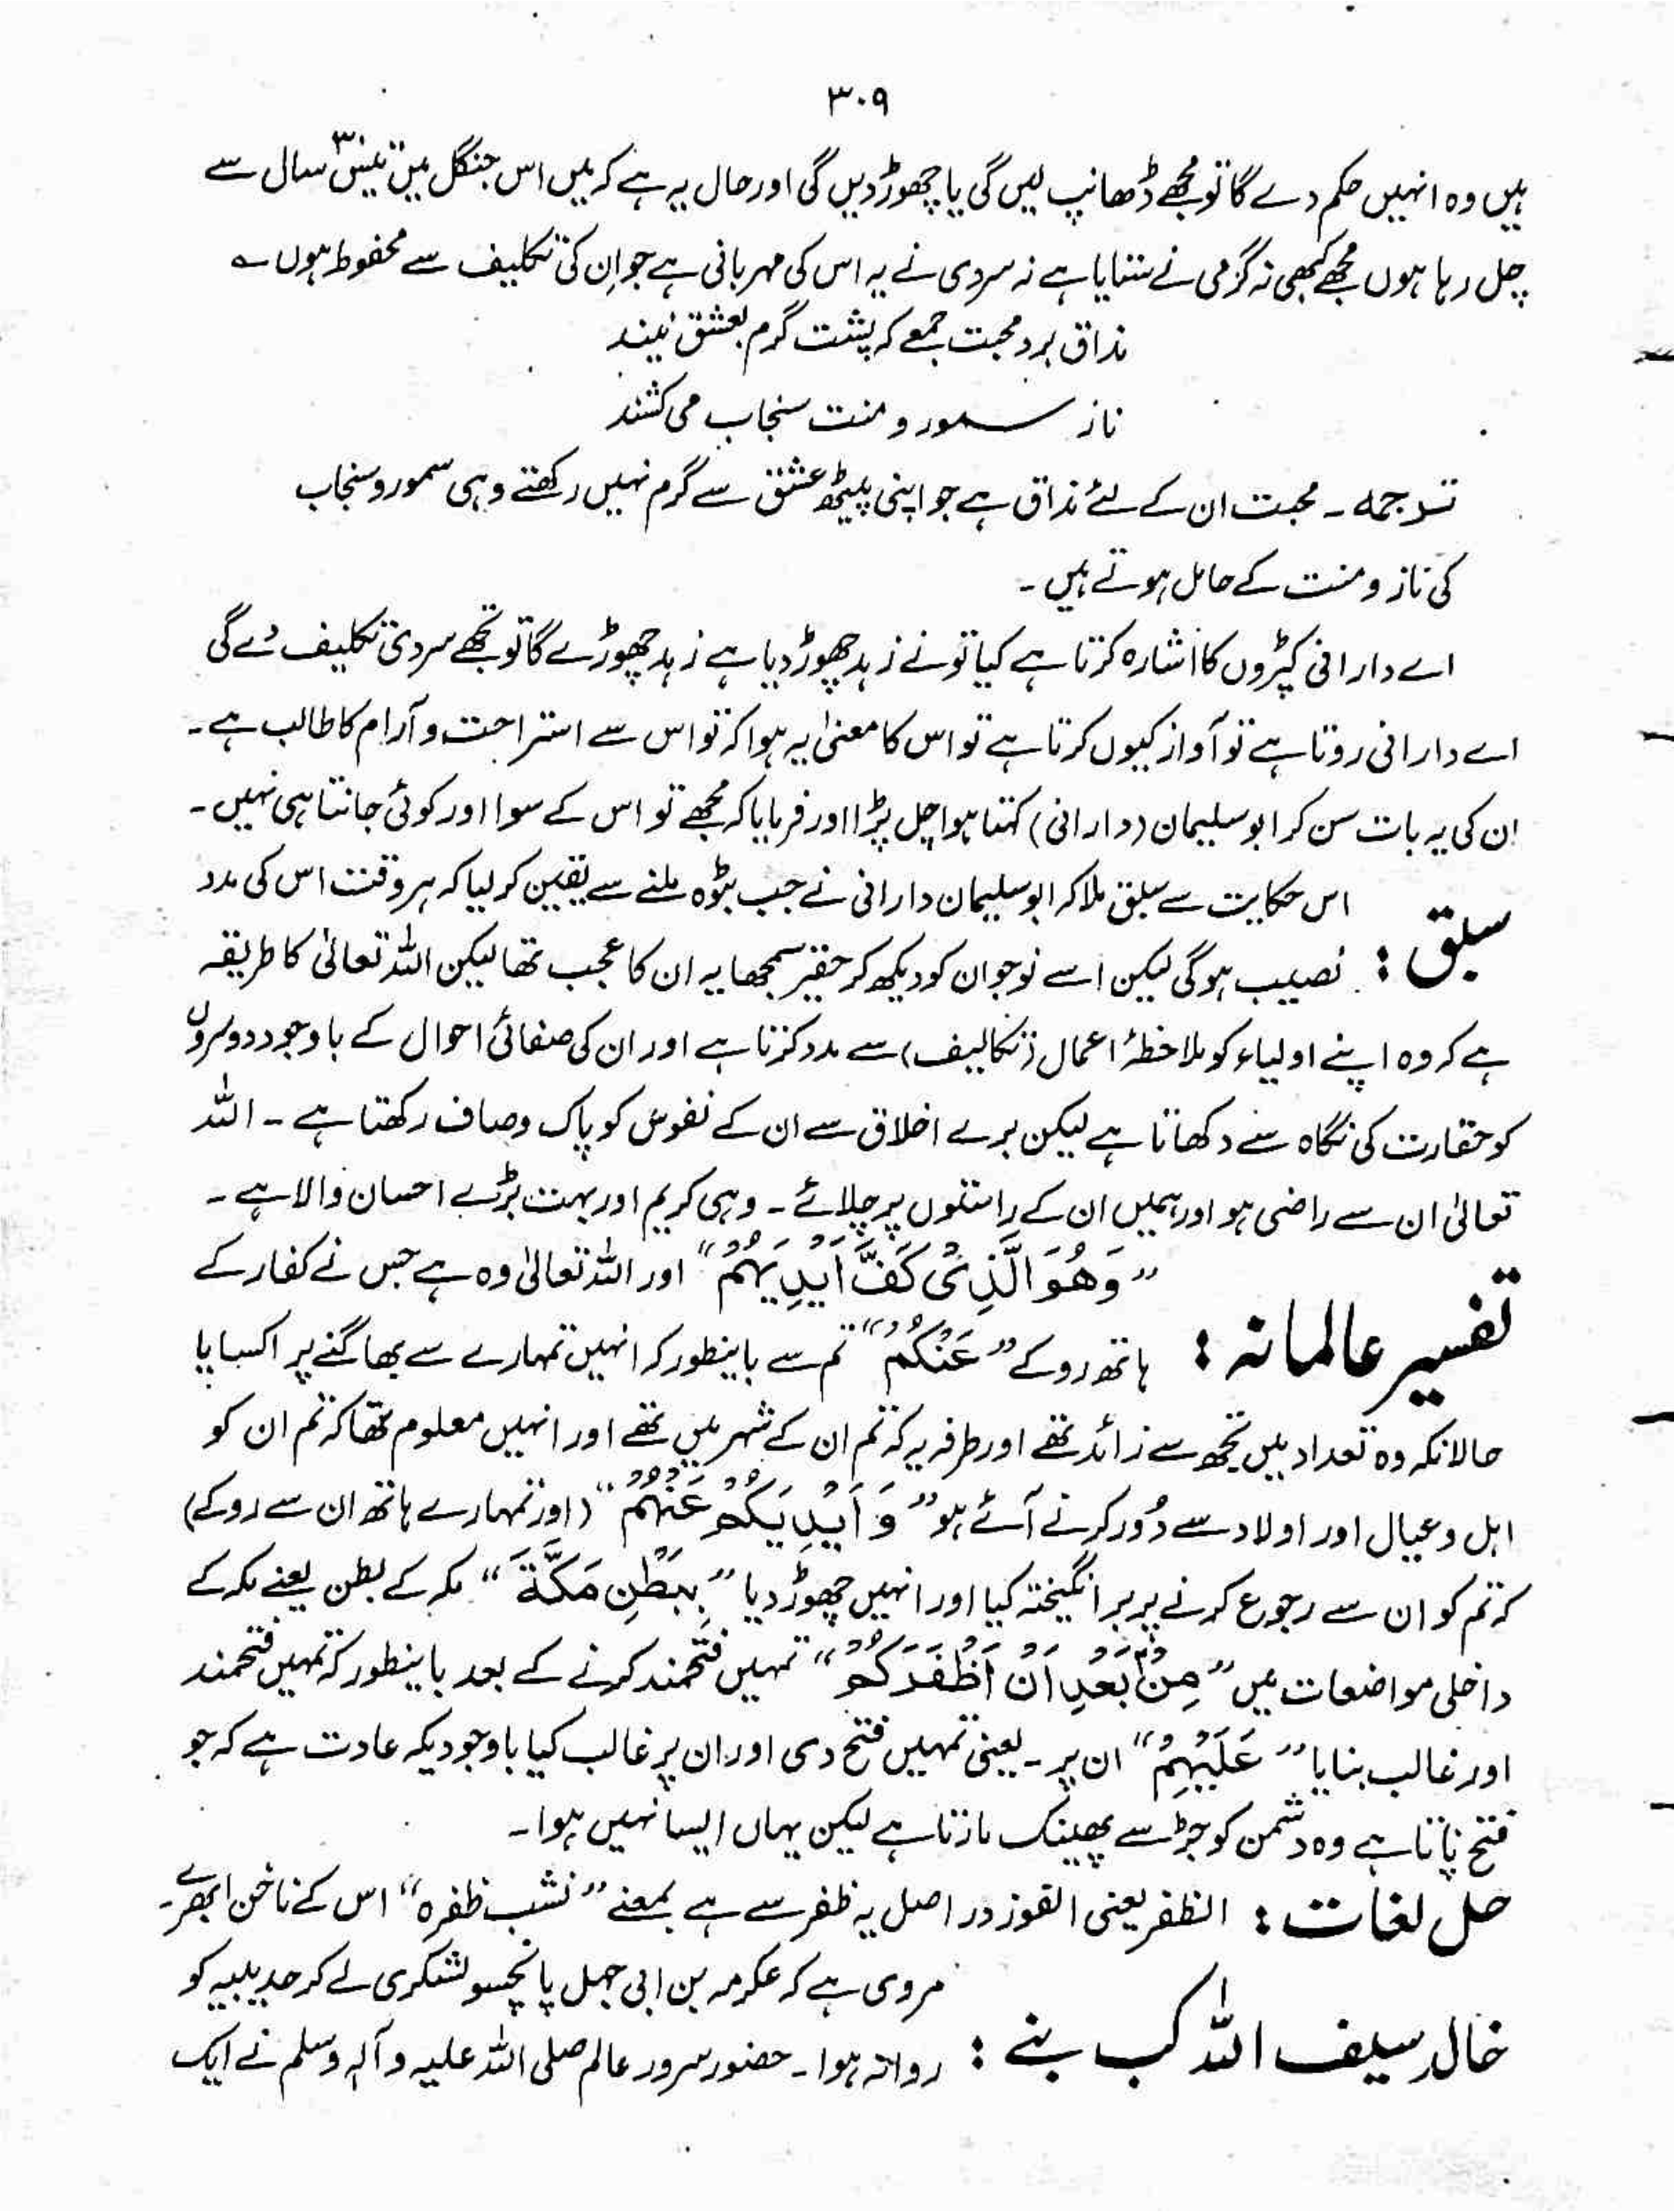 ۳۰۹
ہیں وہ انہیں حکم دے گا تو مجھے ڈھانپ لیں گی یا چھوڑ دیں گی اور حال یہ ہے کہ میں اس جنگل میں تیس۳۰ سال سے
چل رہا ہوں مجھے کبھی نہ گرمی نے ستایا ہے نہ سردی نے یہ اس کی مہربانی ہے جو ان کی تکلیف سے محفوظ ہوں ؎
مذاق برد محبت جمعے کہ پشت گرم بعشق نیند
ناز سمور و منت سنجاب می کشند
ترجمہ ۔ محبت ان کے لئے مذاق ہے جو اپنی پیٹھ عشق سے گرم نہیں رکھتے وہی سمور و سنجاب
کی ناز و منت کے حامل ہوتے ہیں ۔
اے دارانی کپڑوں کا اشارہ کرتا ہے کیا تو نے زہد چھوڑ دیا ہے زہد چھوڑے گا تو تجھے سردی تکلیف دے گی
اے دارانی روتا ہے تو آواز کیوں کرتا ہے تو اس کا معنیٰ یہ ہوا کہ تو اس سے استراحت و آرام کا طالب ہے ۔
ان کی یہ بات سن کر ابو سلیمان (دارانی) کہتا ہوا چل پڑا اور فرمایا کہ مجھے تو اس کے سوا اور کوئی جانتا ہی نہیں ۔
اس حکایت سے سبق ملا کہ ابو سلیمان دارانی نے جب بٹوہ ملنے سے یقین کر لیا کہ ہر وقت اس کی مدد
سبق : نصیب ہوگی لیکن اسے نوجوان کو دیکھ کر حقیر سمجھا یہ ان کا عجب تھا لیکن اللہ تعالیٰ کا طریقہ
ہے کہ وہ اپنے اولیاء کو ملاحظۂ اعمال (تکالیف) سے مدد کرتا ہے اور ان کی صفائی احوال کے باوجود دوسروں
کو حقارت کی نگاہ سے دکھاتا ہے لیکن برے اخلاق سے ان کے نفوس کو پاک و صاف رکھتا ہے ۔ اللہ
تعالیٰ ان سے راضی ہو اور ہمیں ان کے راستوں پر چلائے ۔ وہی کریم اور بہت بڑے احسان والا ہے ۔
”وَهُوَ الَّذِیْ کَفَّ اَیْدِیَہُمْ“ اور اللہ تعالیٰ وہ ہے جس نے کفار کے
تفسیر عالمانہ : ہاتھ روکے ”عَنْکُمْ“ تم سے باینطور کہ انہیں تمہارے سے بھاگنے پر اکسایا
حالانکہ وہ تعداد میں تجھ سے زائد تھے اور طرفہ یہ کہ تم ان کے شہر میں تھے اور انہیں معلوم تھا کہ تم ان کو
اہل و عیال اور اولاد سے دُور کرنے آئے ہو ”وَ اَیْدِیَکُمْ عَنْہُمْ“ (اور تمہارے ہاتھ ان سے روکے)
کہ تم کو ان سے رجوع کرنے پر برانگیختہ کیا اور انہیں چھوڑ دیا ”بِبَطْنِ مَکَّۃَ“ مکہ کے بطن یعنے مکہ کے
داخلی مواضعات میں ”مِنْۢ بَعْدِ اَنْ اَظْفَرَکُمْ“ تمہیں فتحمند کرنے کے بعد باینطور کہ تمہیں فتحمند
اور غالب بنایا ”عَلَیْہِمْ“ ان پر ۔ یعنی تمہیں فتح دی اور ان پر غالب کیا باوجودیکہ عادت ہے کہ جو
فتح پاتا ہے وہ دشمن کو جڑ سے پھینک مارتا ہے لیکن یہاں ایسا نہیں ہوا ۔
حل لغات : الظفر یعنی الفوز در اصل یہ ظفر سے ہے بمعنے ”نشب ظفرہ“ اس کے ناخن ابھرے ۔
مروی ہے کہ عکرمہ بن ابی جہل پانچسو لشکری لے کر حدیبیہ کو
خالد سیف اللہ کب بنے : روانہ ہوا ۔ حضور سرور عالم صلی اللہ علیہ و آلہ وسلم نے ایک